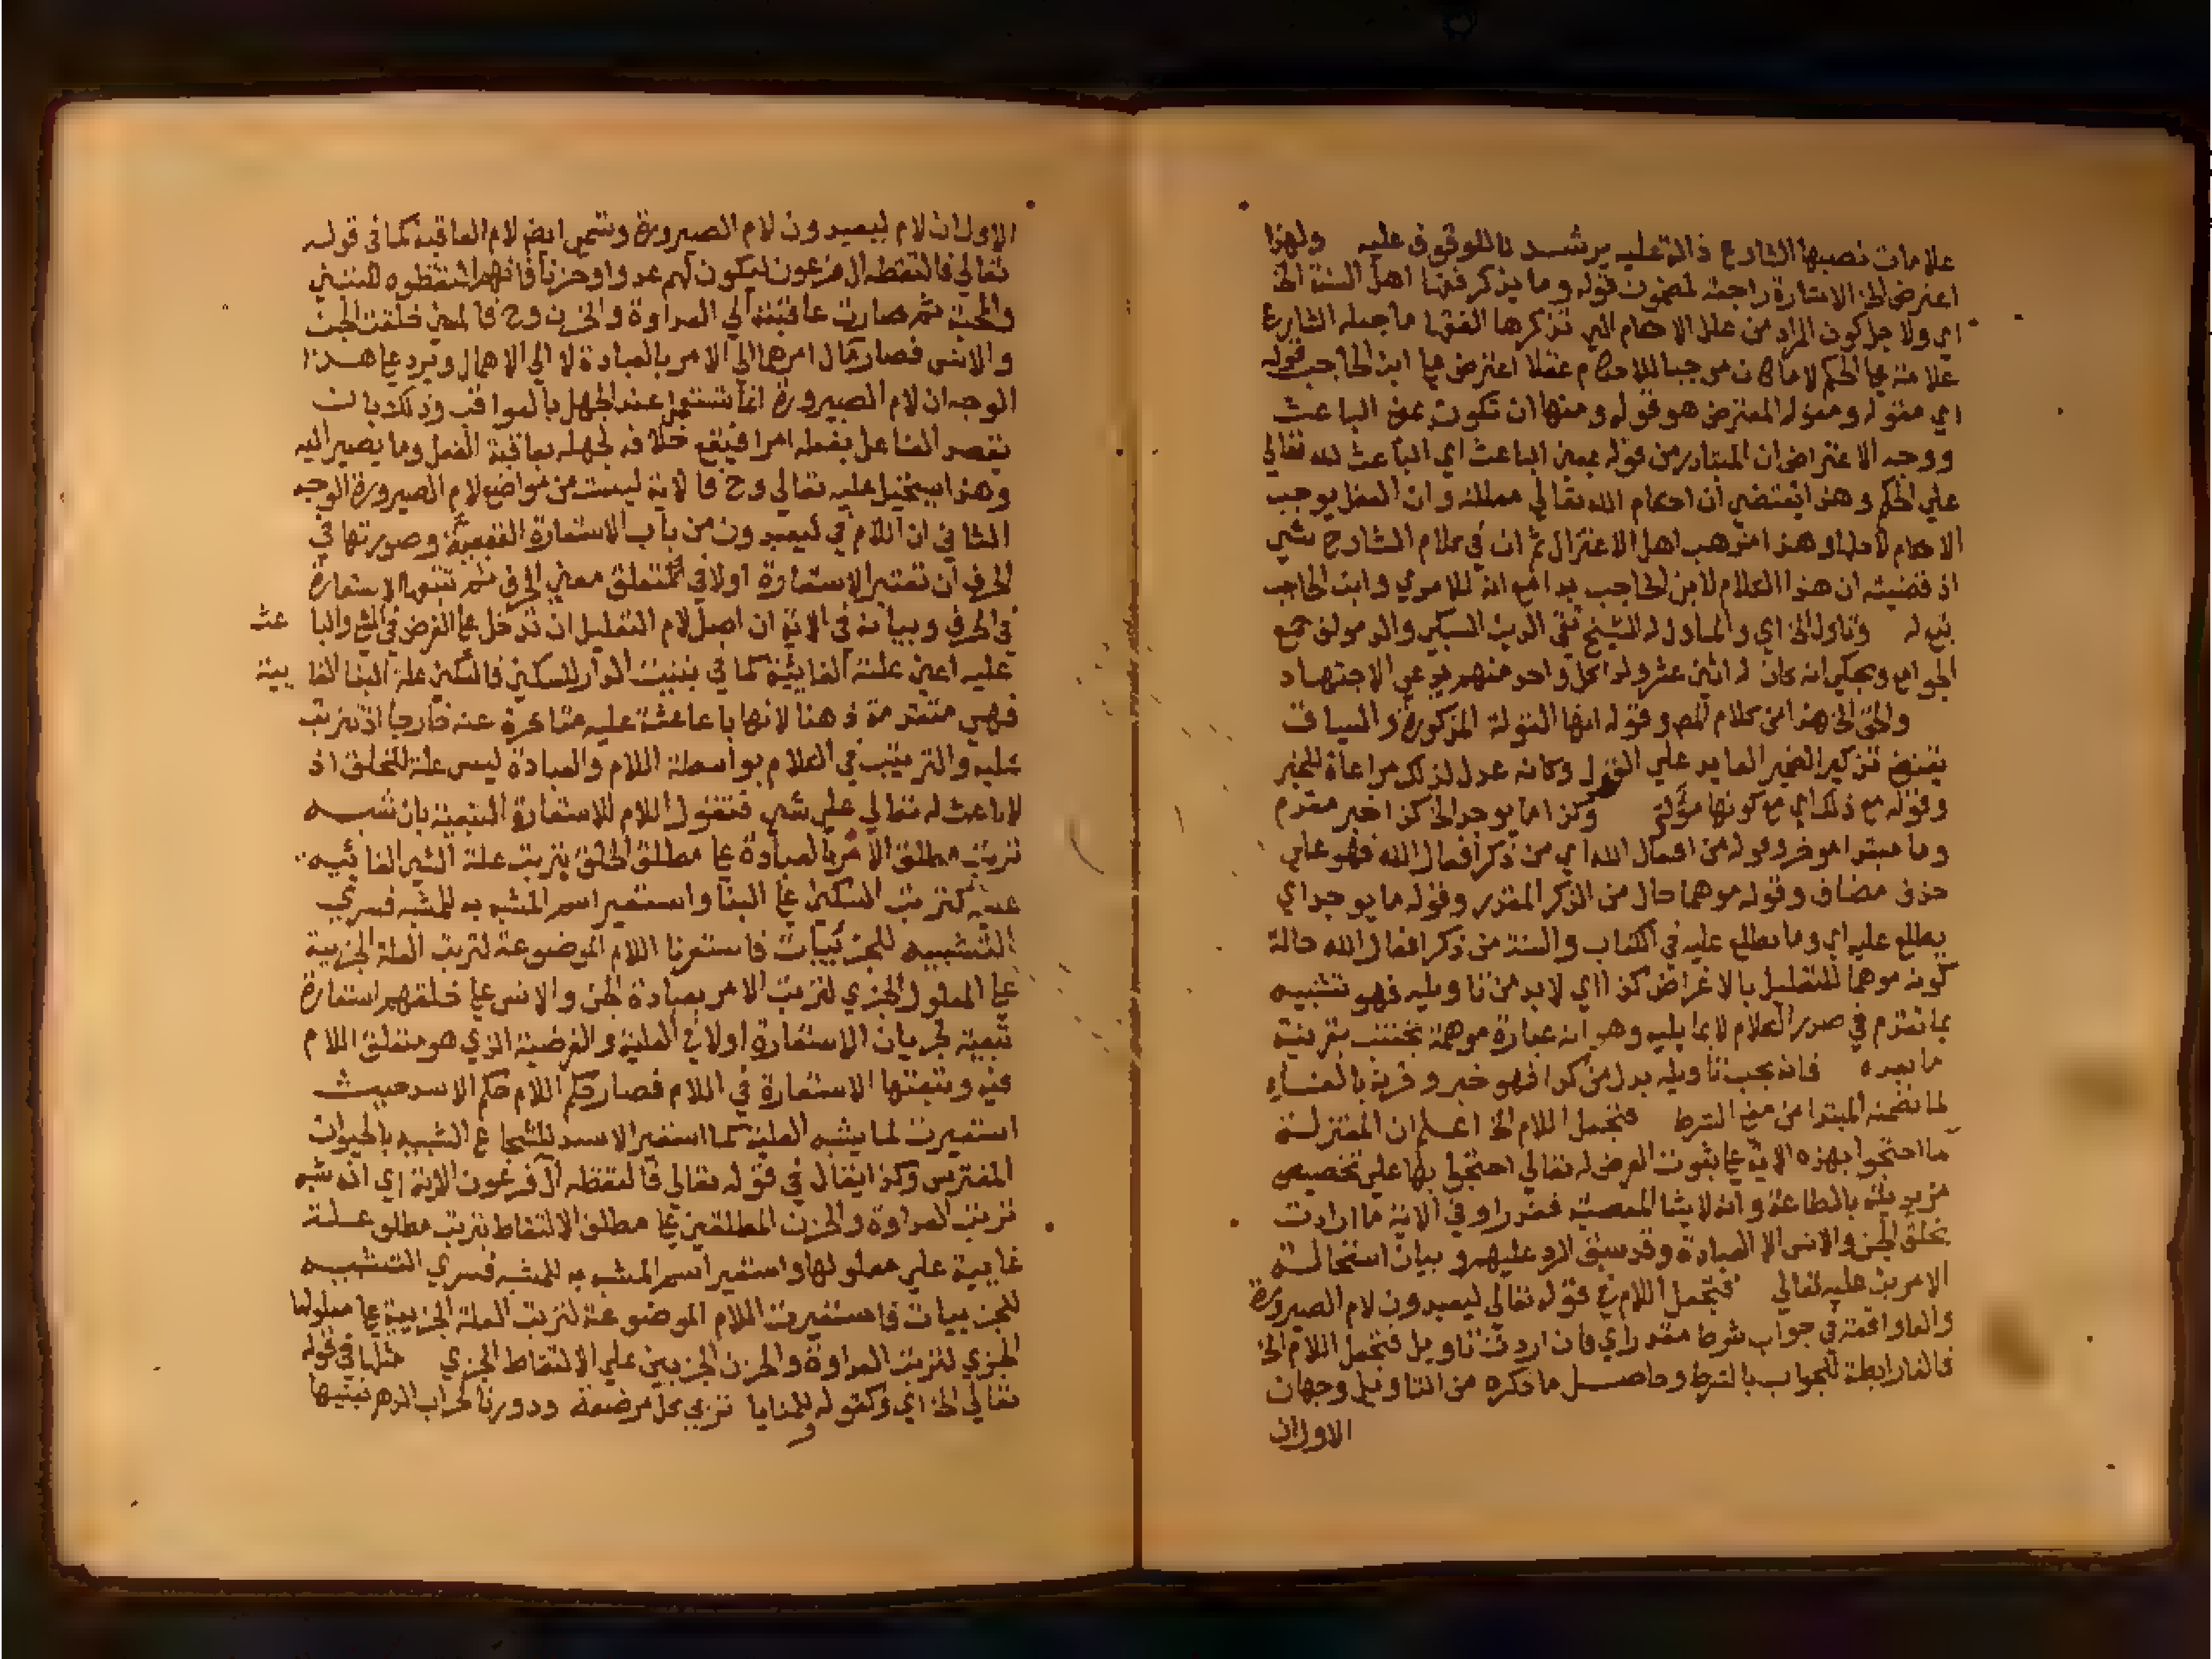 علامات نصبها الشارع دالة عليه يرشد بالوقوف عليه ولهذا
اعترض الخ الاشارة راجعة لمضمون قوله وما يذكر فقها اهل السنة الخ
اي ولاجل كون المراد من علل الاحكام التي تذكرها الفقها ما جعله الشارع
علامة علي الحكم لا ما كان موجبا للاحكام عقلا اعترض علي ابن الحاجب قوله
اي مقوله ومقوله المعترض هو قوله ومنها ان تكون بمعني الباعث
ووجه الاعتراض ان المتبادر من قوله بمعني الباعث اي الباعث لله تعالي
علي الحكم وهذا يقتضي ان احكام الله تعالي معللة وان العقل يوجب
الاحكام لاجلها وهذا مذهب اهل الاعتزال ثم ان في كلام الشارح شي
اذ قضيته ان هذا الكلام لابن الحاجب مع انه للامدي وابن الحاجب
تبع له وتاول الخ اي والماول له الشيخ تقي الدين السبكي والد مولف جمع
الجوامع ويحكي انه كان له اثني عشر ولدا كل واحد منهم يدعي الاجتهاد
والحق الخ هذا من كلام المص وقوله انها المقولة المذكورة والسياق
يقتضي تذكير الضمير العايد علي القول وكانه عدل لذلك مراعاة للخبر
وقوله مع ذلك اي مع كونها مؤلة وكذا ما يوجد الخ كذا خبر مقدم
وما مبتدا موخر وقوله من افعال الله اي من ذكر افعال الله فهو علي
حذف مضاف وقوله موهما حال من الذكر المقدر وقوله ما يوجد اي
يطلع عليه اي وما يطلع عليه في الكتاب والسنة من ذكر افعال الله حالة
كونه موهما للتعليل بالاغراض كذا اي لا بد من تاويله فهو تشبيه
بما تقدم في صدر الكلام لا بما يليه وهو انه عبارة موهمة تجتنب بقرينة
ما بعده فانه يجب تاويله بدل من كذا فهو خبر وقرنه بالفاء
لما تضمنه المبتدا من معني الشرط فتجعل اللام الخ اعلم ان المعتزلة
كما احتجوا بهذه الاية علي ثبوت الغرض له تعالي احتجوا بها علي تخصيص
مزيديته بالطاعة وانه لا يشا المعصية فقدروا في الاية ما اردت
بخلق الجن والانس الا العبادة وقد سبق الرد عليهم وبيان استحالة
الامرين عليه تعالي فتجعل اللام في قوله تعالي ليعبدون لام الصيرورة
والفا واقعة في جواب شرط مقدر اي فان اردت تاويل فتجعل اللام الخ
فالفا رابطة للجواب بالشرط وحاصل ما ذكره من التاويل وجهان
الاول ان
الاول ان لام ليعبدون لام الصيرورة وتسمي ايضم لام العاقبة كما في قوله
تعالي فالتقطه ال فرعون ليكون لهم عدوا وحزنا فانهم التقطوه للتبني
والمحبة ثم صارت عاقبته الي العداوة والحزن وح فالمعني خلقت الجن
والانس فصار مال امرهما الي الامر بالعبادة لا الي الاهمال ويرد علي هذا
الوجه ان لام الصيرورة انما تستعمل عند الجهل بالعواقب وذلك بان
يقصد الفاعل بفعله امرا فيقع خلافه لجهله بعاقبة الفعل وما يصير اليه
وهذا يستحيل عليه تعالي وح فالاية ليست من مواضع لام الصيرورة الوجه
الثاني ان اللام في ليعبدون من باب الاستعارة التبعية وصورتها في
الحرف ان تعتبر الاستعارة اولا في متعلق معني الحرف ثم تتبعها الاستعارة
في الحرف وبيانه في الاية ان اصل لام التعليل ان تدخل علي الغرض في الشي والباعث
عليه اعني علته الغائية كما في بنيت الدار للسكني فالسكني علة البنا الغايية
فهي متقدمة ذهنا لانها باعثة عليه متاخرة عنه خارجا اذ تترتب
عليه والترتيب في الكلام بواسطة اللام والعبادة ليس علة للخلق اذ
لا باعث له تعالي علي شي فتقول اللام للاستعارة التبعية بان شبه
ترتب مطلق الامر بالعبادة علي مطلق الخلق بترتب علة الشي الغائيه
عليه كترتب السكني علي البنا واستعير اسم المشبه به للمشبه فسري
التشبيه للجزئيات فاستعرنا اللام الموضوعة لترتب العلة الجزيية
علي المعلول الجزي لترتب الامر بعبادة الجن والانس علي خلقهم استعارة
تبعية لجريان الاستعارة اولا في العلية والغرضية الذي هو متعلق اللام
فيه وبتبعيتها الاستعارة في اللام فصار حكم اللام حكم الاسد حيث
استعيرت لما يشبه العلية كما استعير الاسد للشجاع الشبيه بالحيوان
المفترس وكذا يقال في قوله تعالي فالتقطه ال فرعون الاية اي انه شبه
ترتب العداوة والحزن المطلقين علي مطلق الالتقاط بترتب مطلق علة
غايية علي معلولها واستعير اسم المشبه به للمشبه فسري التشبيه
للجزييات فاستعيرت اللام الموضوعة لترتب العلة الجزيية علي معلولها
الجزي لترتب العداوة والحزن الجزيين علي الالتقاط الجزي مثلها في قوله
تعالي الخ اي وكقوله للمنايا تربي كل مرضعة ودورنا لخراب الدهر نبنيها